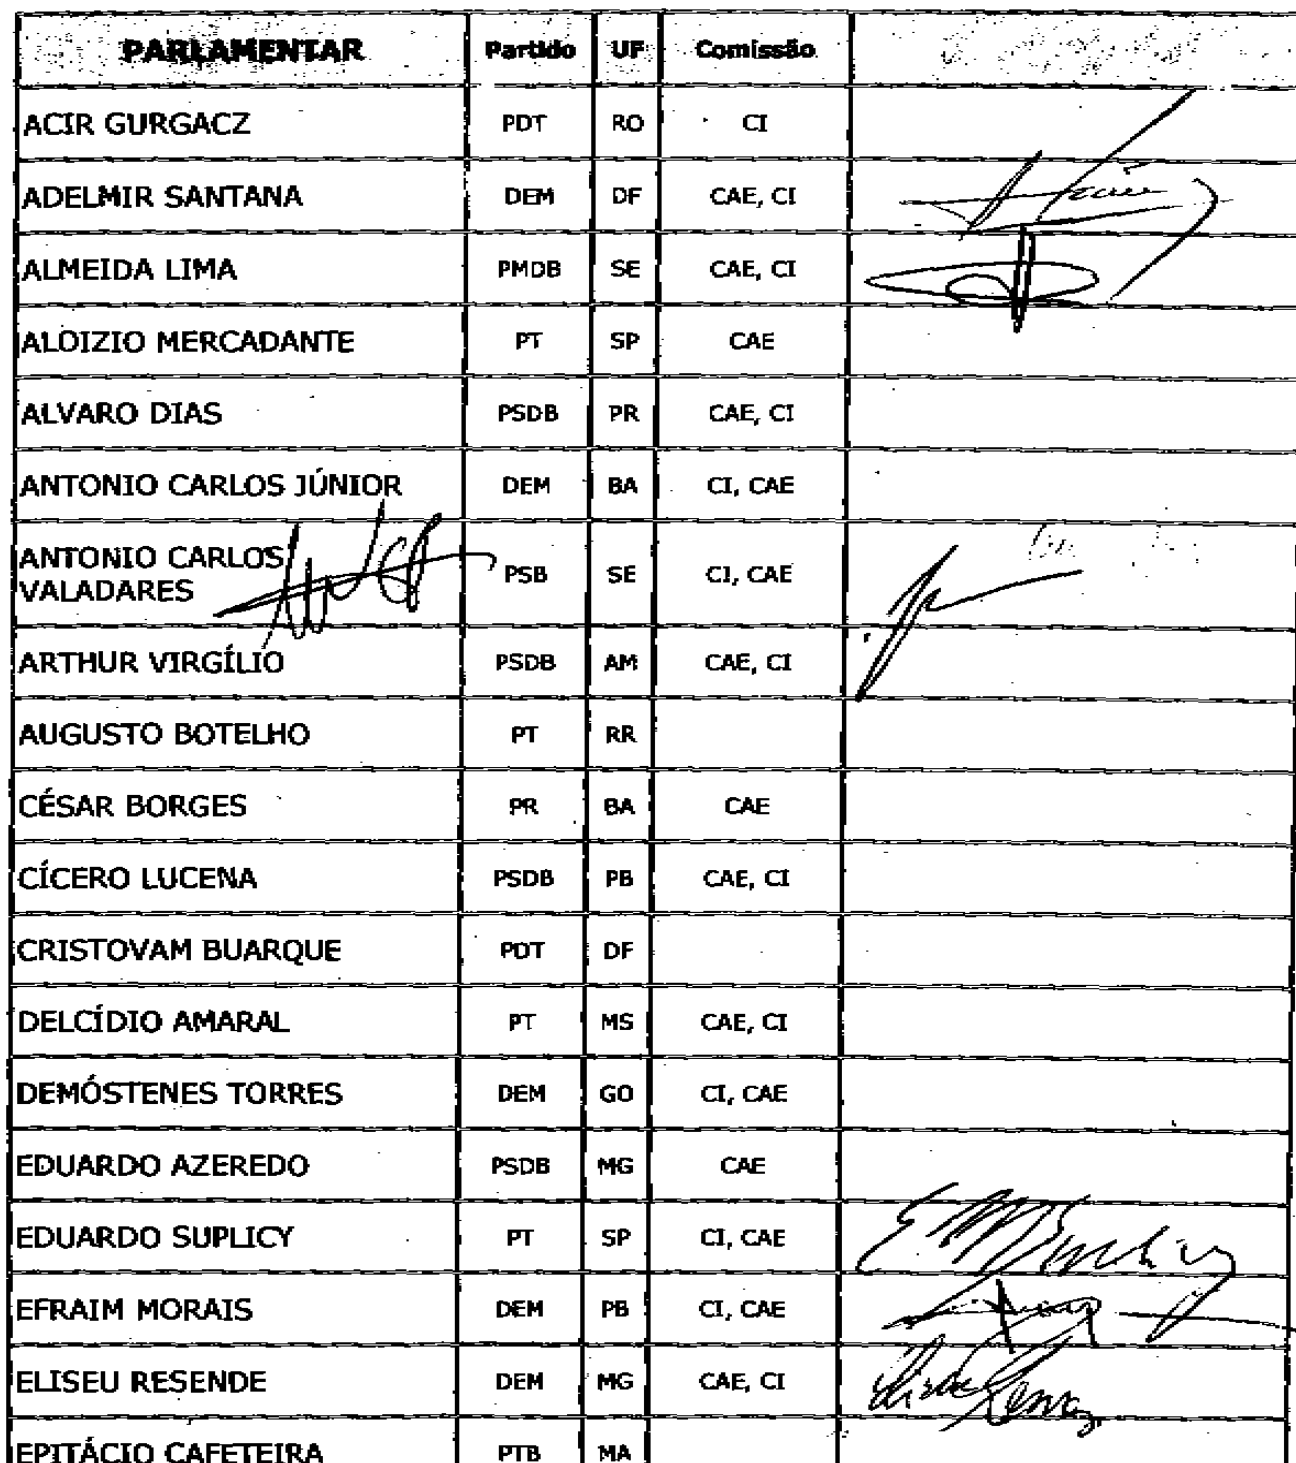 PARLAMENTAR Partido UF Comissão
ACIR GURGACZ PDT RO CI
ADELMIR SANTANA DEM DF CAE, CI
ALMEIDA LIMA PMDB SE CAE, CI
ALOIZIO MERCADANTE PT SP CAE
ALVARO DIAS PSDB PR CAE, CI
ANTONIO CARLOS JÚNIOR DEM BA CI, CAE
ANTONIO CARLOS
VALADARES PSB SE CI, CAE
ARTHUR VIRGÍLIO PSDB AM CAE, CI
AUGUSTO BOTELHO PT RR
CÉSAR BORGES PR BA CAE
CÍCERO LUCENA PSDB PB CAE, CI
CRISTOVAM BUARQUE PDT DF
DELCÍDIO AMARAL PT MS CAE, CI
DEMÓSTENES TORRES DEM GO CI, CAE
EDUARDO AZEREDO PSDB MG CAE
EDUARDO SUPLICY PT SP CI, CAE
EFRAIM MORAIS DEM PB CI, CAE
ELISEU RESENDE DEM MG CAE, CI
EPITÁCIO CAFETEIRA PTB MA